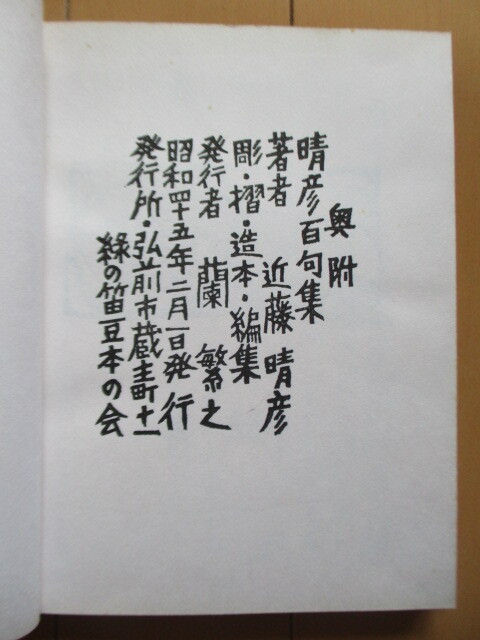 奥附
晴彦百句集
著者 近藤晴彦
彫・摺・造本・編集
発行者 蘭繁之
昭和四十五年二月一日発行
発行所・弘前市蔵主町十一
緑の笛豆本の会